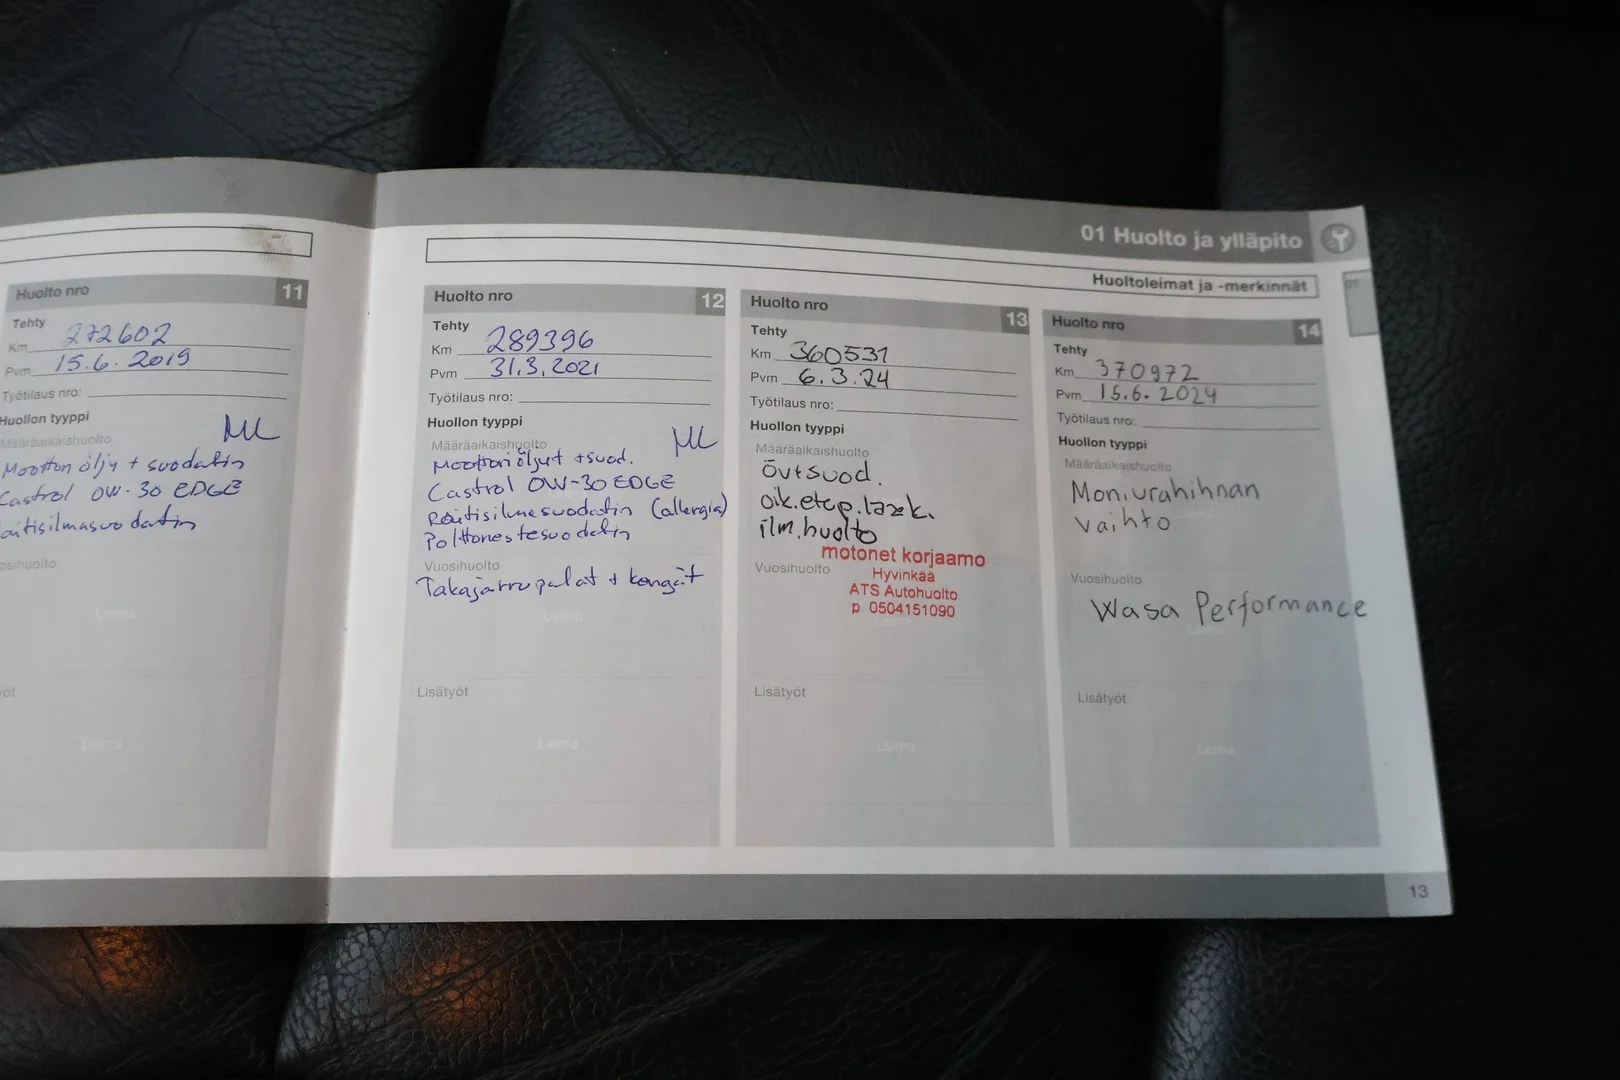 Huolto nro 11
Tehty
Km 272602
Pvm 15.6.2019
Työtilaus nro:
Huollon tyyppi
Määräaikaishuolto
ML
Moottoriöljy + suodatin
Castrol 0W-30 EDGE
Vuosihuolto
Leima
Leima
01 Huolto ja ylläpito
Huoltoleimat ja -merkinnät
Huolto nro 12
Tehty
Km 289396
Pvm 31.3.2021
Työtilaus nro:
Huollon tyyppi
Määräaikaishuolto
ML
Moottoriöljyt + suod.
Castrol 0W-30 EDGE
Raitisilmasuodatin (allergia)
Polttonestesuodatin
Vuosihuolto
Takajarrupalat + kengät
Leima
Lisätyöt
Leima
Huolto nro 13
Tehty
Km 360531
Pvm 6.3.24
Työtilaus nro:
Huollon tyyppi
Määräaikaishuolto
öv+suod.
oik.etup.lazk.
ilm.huolto
motonet korjaamo
Vuosihuolto
Hyvinkää
ATS Autohuolto
p. 0504151090
Leima
Lisätyöt
Leima
Huolto nro 14
Tehty
Km 370972
Pvm 15.6.2024
Työtilaus nro:
Huollon tyyppi
Määräaikaishuolto
Moniurahihnan
vaihto
Vuosihuolto
Wasa Performance
Leima
Lisätyöt
Leima
13